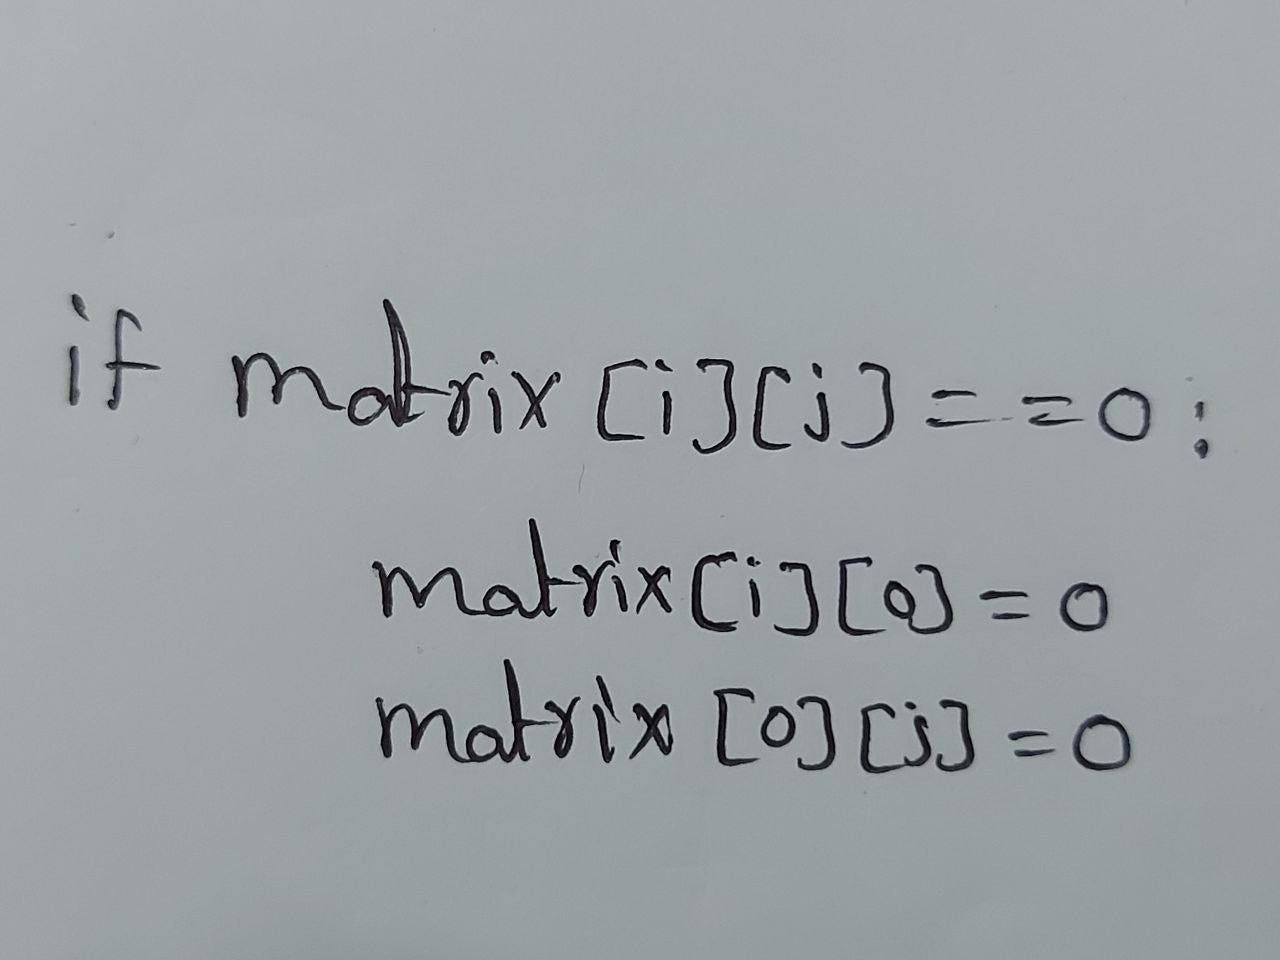 if matrix [i][j] = = 0 :
matrix[i][0] = 0
matrix [0][j] = 0